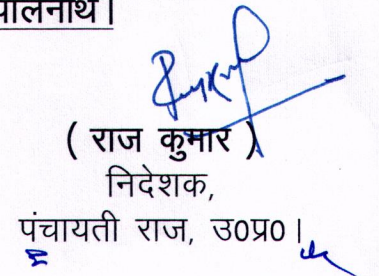 पालनार्थ।
( राज कुमार )
निदेशक,
पंचायती राज, उ0प्र0।